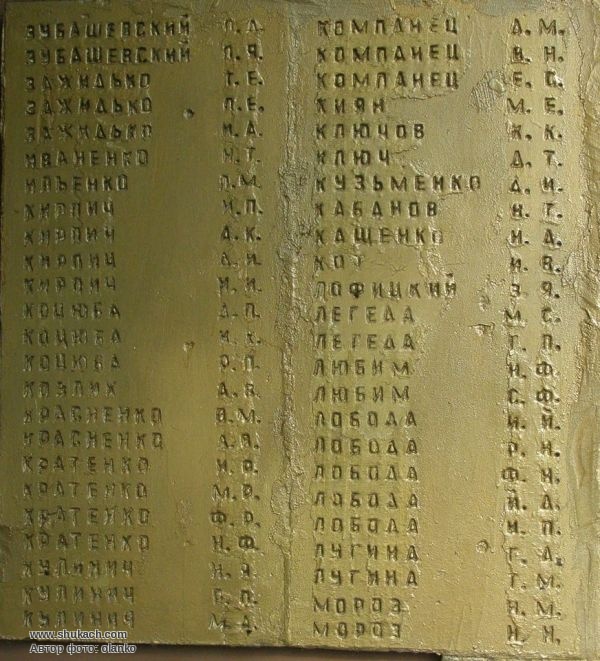 ЗУБАШЕВСКИЙ П.Д.
ЗУБАШЕВСКИЙ П.Я.
ЗАЖИДЬКО Т.Е.
ЗАЖИДЬКО П.Е.
ЗАЖИДЬКО И.А.
ИВАНЕНКО Н.Т.
ИЛЬЕНКО П.М.
КИРПИЧ И.П.
КИРПИЧ А.К.
КИРПИЧ Д.И.
КИРПИЧ И.И.
КОЦЮБА Д.П.
КОЦЮБА И.К.
КОЦЮБА Р.П.
КОЗЛИК А.В.
КРАСНЕНКО В.М.
КРАСНЕНКО А.Я.
КРАТЕНКО И.Р.
КРАТЕНКО М.Р.
КРАТЕНКО Ф.Р.
КРАТЕНКО Н.Ф.
КУЛИНИЧ Н.Я.
КУЛИНИЧ Г.П.
КУЛИНИЧ М.Д.
КОМПАНЕЦ Д.М.
КОМПАНЕЦ В.Н.
КОМПАНЕЦ Е.С.
КИЯН М.Е.
КЛЮЧОВ К.К.
КЛЮЧ Д.Т.
КУЗЬМЕНКО Д.И.
КАБАНОВ Н.Г.
КАЩЕНКО Н.Д.
КОТ И.В.
ЛОФИЦКИЙ З.Я.
ЛЕГЕДА М.С.
ЛЕГЕДА Г.П.
ЛЮБИМ Н.Ф.
ЛЮБИМ С.Ф.
ЛОБОДА И.И.
ЛОБОДА Р.Н.
ЛОБОДА Ф.Ч.
ЛОБОДА И.Д.
ЛОБОДА И.П.
ЛУГИНА Г.Д.
ЛУГИНА Т.М.
МОРОЗ Н.М.
МОРОЗ И.Н.
www.shukach.com
Автор фото: olanko